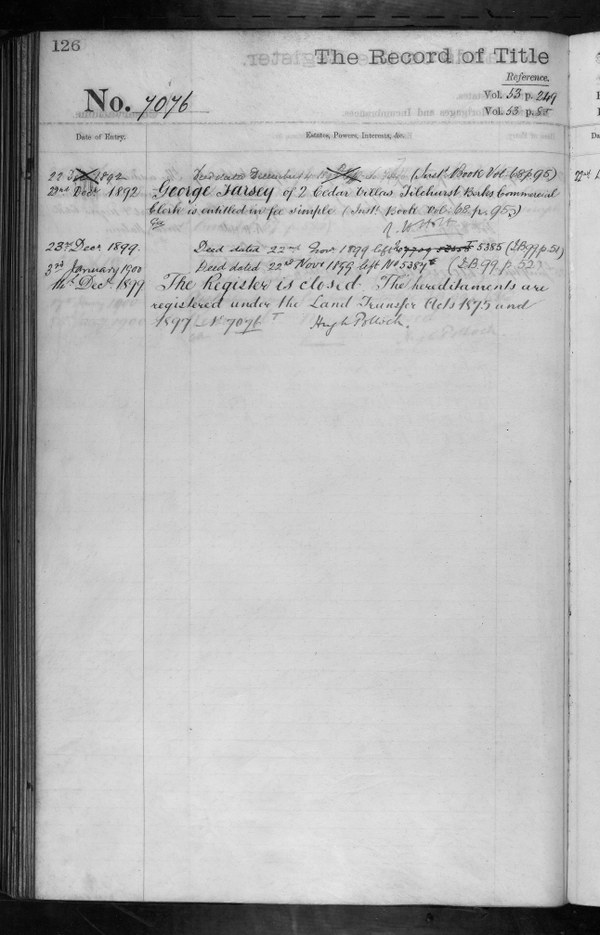 126
The Record of Title
Reference.
No. 7076
Vol. 53 p. 249
Vol. 53 p.
Date of Entry.
Estates, Powers, Interests, &c.
22 1892 (Inst. Book Vol. 68 p. 95)
22nd Decr 1892 George Tarsey of 2 Cedar Villas Tilehurst Berks Commercial
Clerk is entitled in fee simple (Inst. Book Vol. 68 p. 95)
23rd Decr 1899. Deed dated 22nd Novr 1899 left 5385 (I.B. 99 p. 51)
3rd January 1900 Deed dated 22nd Novr 1899 left No 5387 (I.B. 99 p. 52)
Decr 1899 The Register is closed The hereditaments are
registered under the Land Transfer Acts 1875 and
1897 No 7076 T Hugh Pollock.